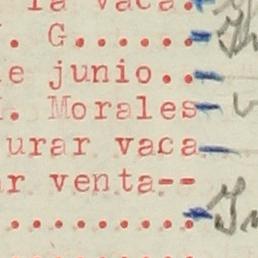 la vaca.
. G......
e junio..
. Morales
urar vaca
r venta--
.........